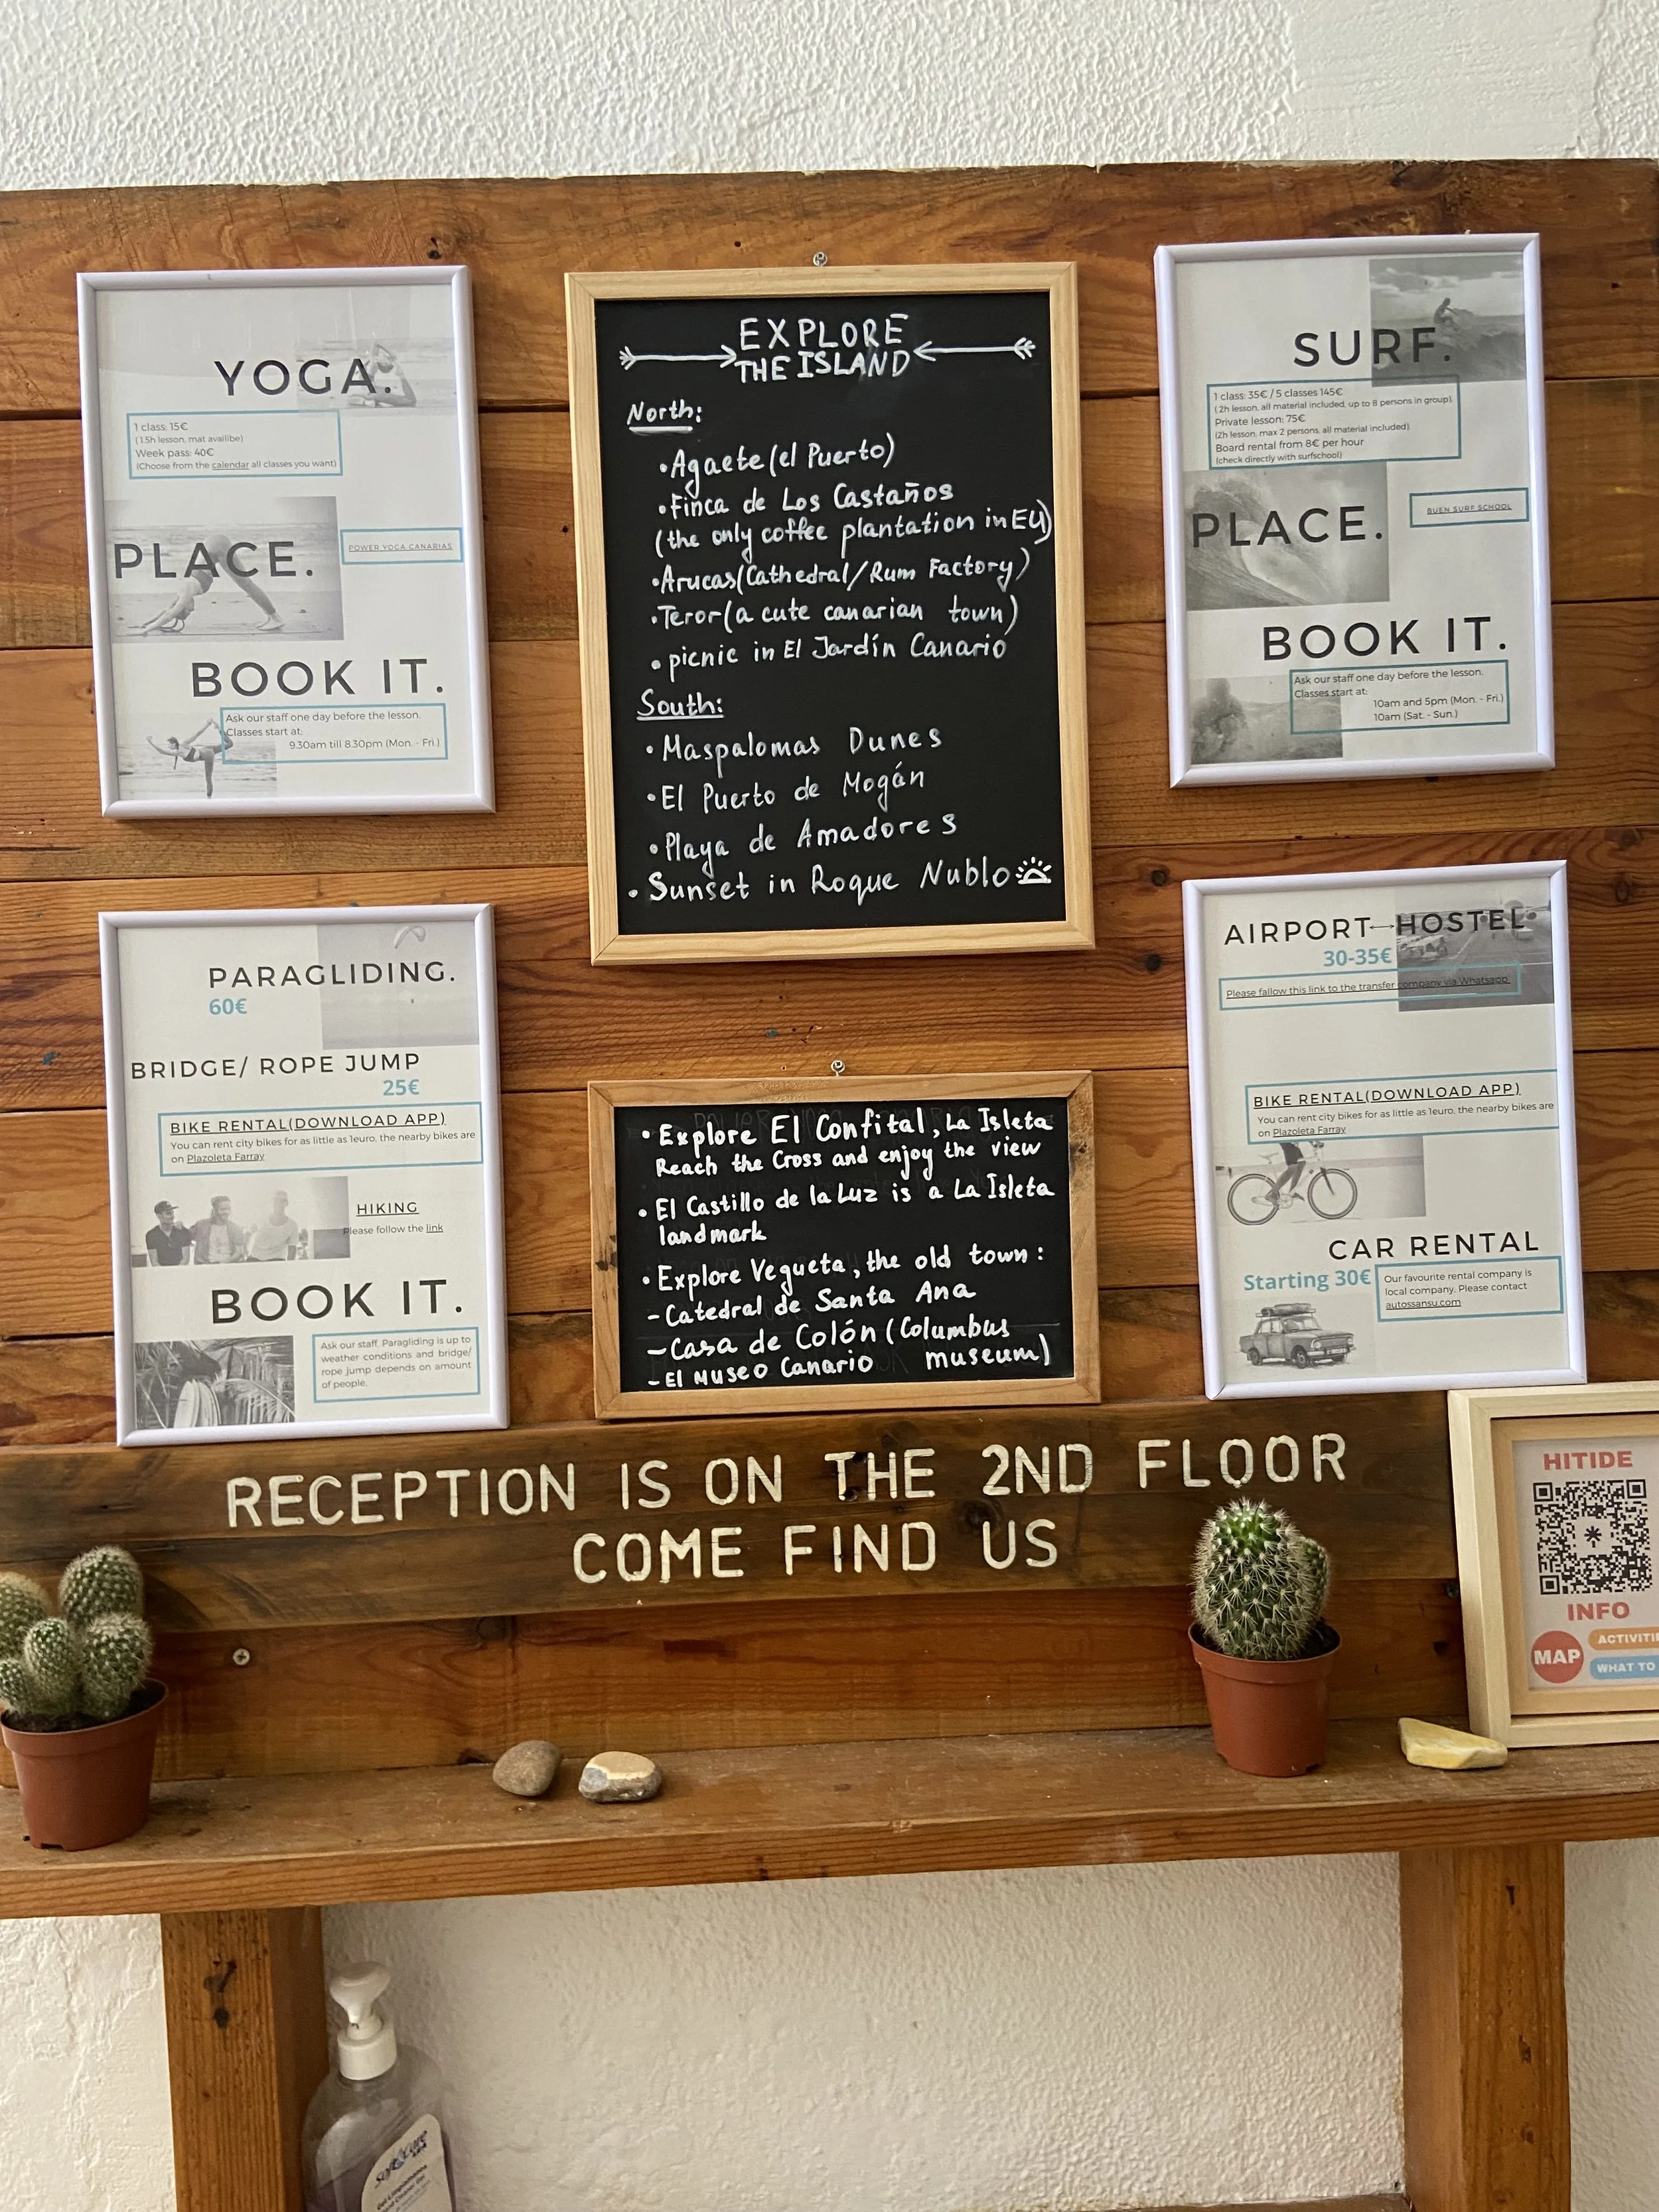 YOGA.
1 class: 15€
(1.5h lesson, mat availibe)
Week pass: 40€
(Choose from the calendar all classes you want)
PLACE.
POWER YOGA CANARIAS
BOOK IT.
Ask our staff one day before the lesson.
Classes start at:
9.30am till 8.30pm (Mon. - Fri.)
EXPLORE
THE ISLAND
North:
•Agaete (el Puerto)
•Finca de Los Castaños
(the only coffee plantation in EU)
•Arucas (Cathedral/Rum Factory)
•Teror (a cute canarian town)
•picnic in El Jardín Canario
South:
•Maspalomas Dunes
•El Puerto de Mogán
•Playa de Amadores
•Sunset in Roque Nublo
SURF.
1 class: 35€ / 5 classes 145€
(2h lesson, all material included, up to 8 persons in group).
Private lesson: 75€
(2h lesson, max 2 persons, all material included).
Board rental from 8€ per hour
(check directly with surfschool)
PLACE.
BUEN SURF SCHOOL
BOOK IT.
Ask our staff one day before the lesson.
Classes start at:
10am and 5pm (Mon. - Fri.)
10am (Sat. - Sun.)
PARAGLIDING.
60€
BRIDGE/ ROPE JUMP
25€
BIKE RENTAL(DOWNLOAD APP)
You can rent city bikes for as little as 1euro, the nearby bikes are
on Plazoleta Farray
HIKING
Please follow the link
BOOK IT.
Ask our staff. Paragliding is up to
weather conditions and bridge/
rope jump depends on amount
of people.
•Explore El Confital, La Isleta
Reach the Cross and enjoy the view
•El Castillo de la Luz is a La Isleta
landmark
•Explore Vegueta, the old town:
-Catedral de Santa Ana
-Casa de Colón (Columbus
museum)
-El Museo Canario
AIRPORT↔HOSTEL.
30-35€
Please fallow this link to the transfer company via Whatsapp.
BIKE RENTAL(DOWNLOAD APP)
You can rent city bikes for as little as 1euro, the nearby bikes are
on Plazoleta Farray
CAR RENTAL
Starting 30€
Our favourite rental company is
local company. Please contact
autossansu.com
RECEPTION IS ON THE 2ND FLOOR
COME FIND US
HITIDE
INFO
MAP
WHAT TO